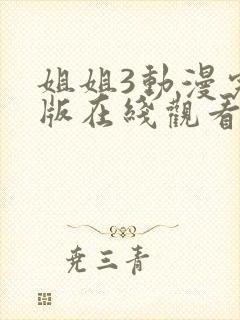 姐姐3動漫
版在綫觀看
尭三青